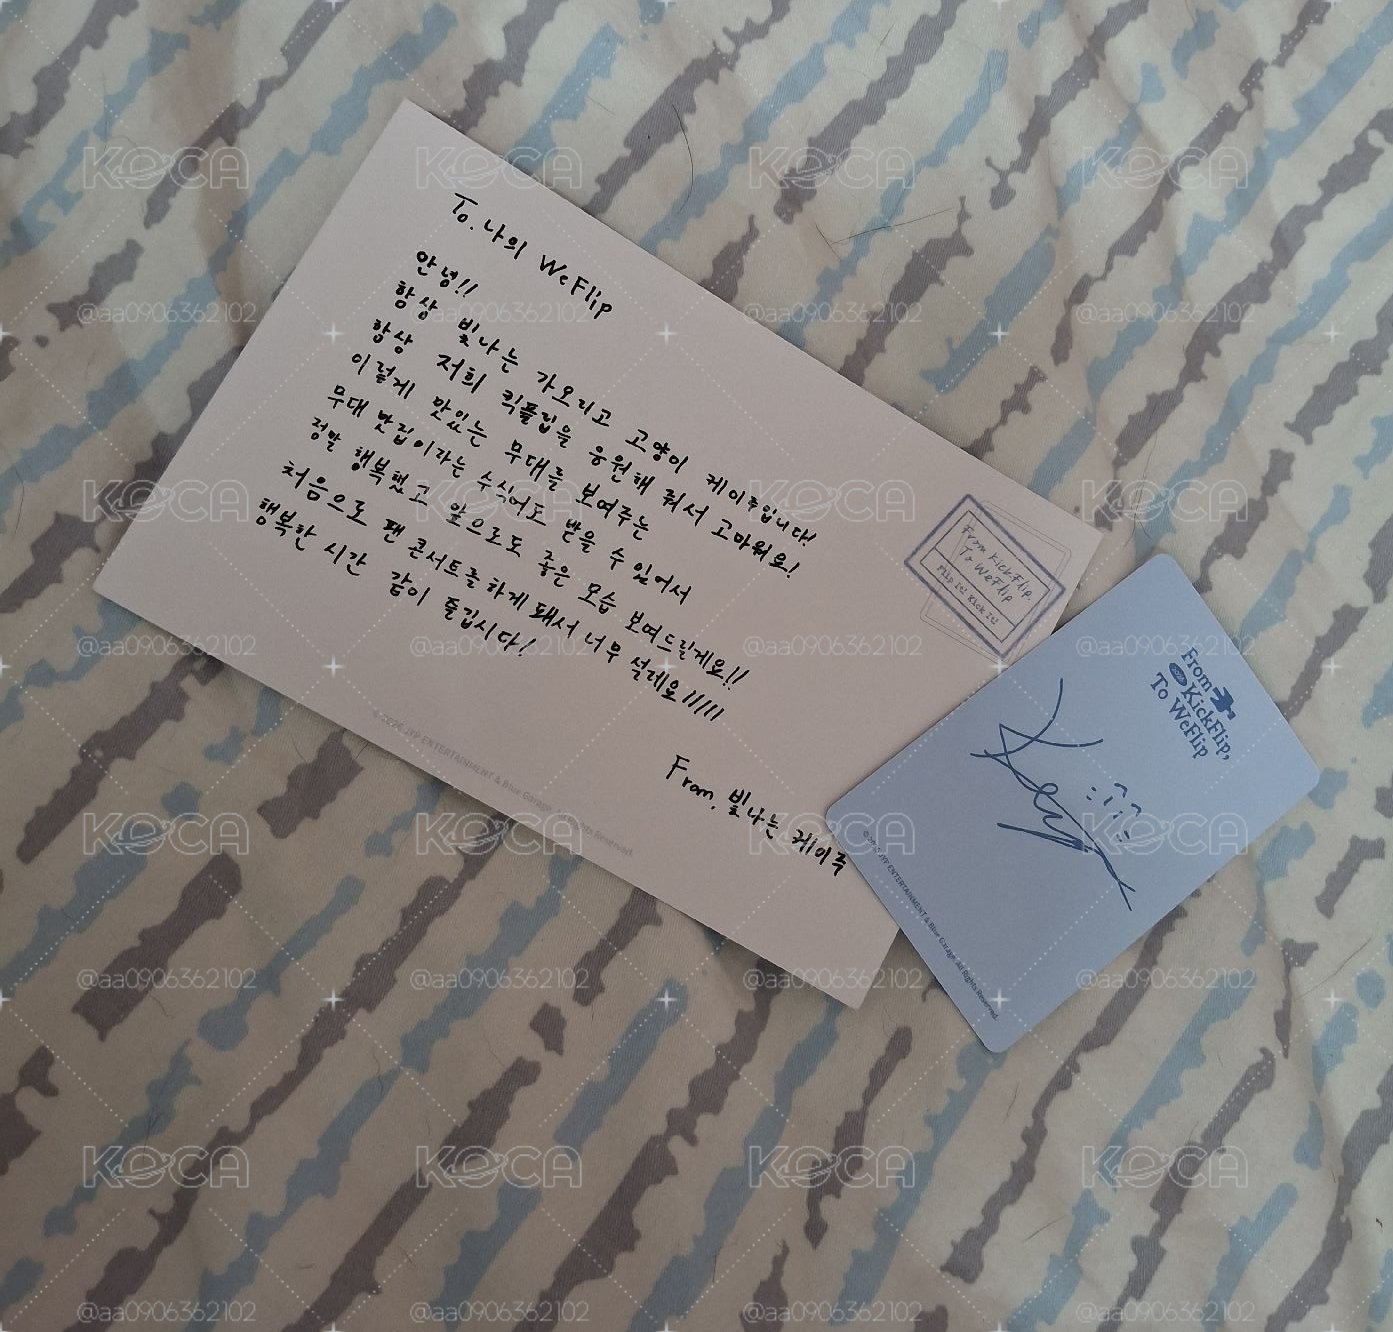 To. 나의 WeFlip
안녕!!
항상 빛나는 가오리고 고양이 케이주입니다!
항상 저희 킥플립을 응원해 줘서 고마워요!
이렇게 맛있는 무대를 보여주는
무대 맛집이라는 수식어도 받을 수 있어서
정말 행복했고 앞으로도 좋은 모습 보여드릴게요!!
처음으로 팬 콘서트를 하게 돼서 너무 설레요!!!!!
행복한 시간 같이 즐깁시다!
From. 빛나는 케이주
From KickFlip,
To WeFlip
Flip It! Kick It!
JYP ENTERTAINMENT & Blue Garage. All Rights Reserved.
From
KickFlip,
To WeFlip
JYP ENTERTAINMENT & Blue Garage. All Rights Reserved.
KOCA
@aa0906362102